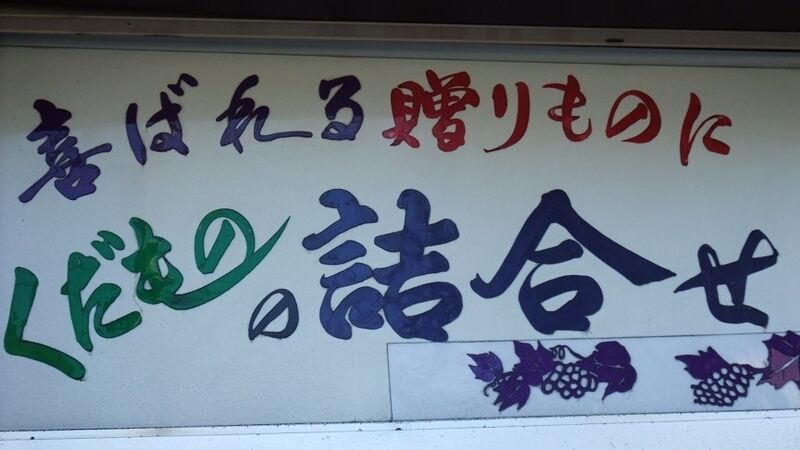 喜ばれる贈りものに
くだものの詰合せ